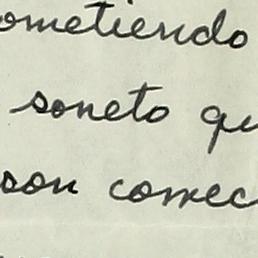 ometiendo
soneto qu
son correc